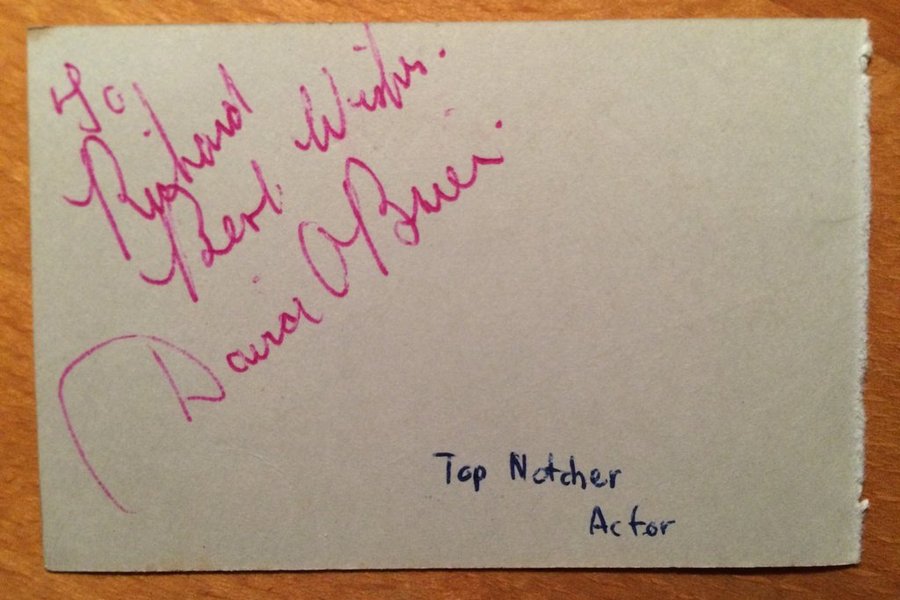 To
Richard
Best Wishes.
David O'Brien
Top Notcher
Actor